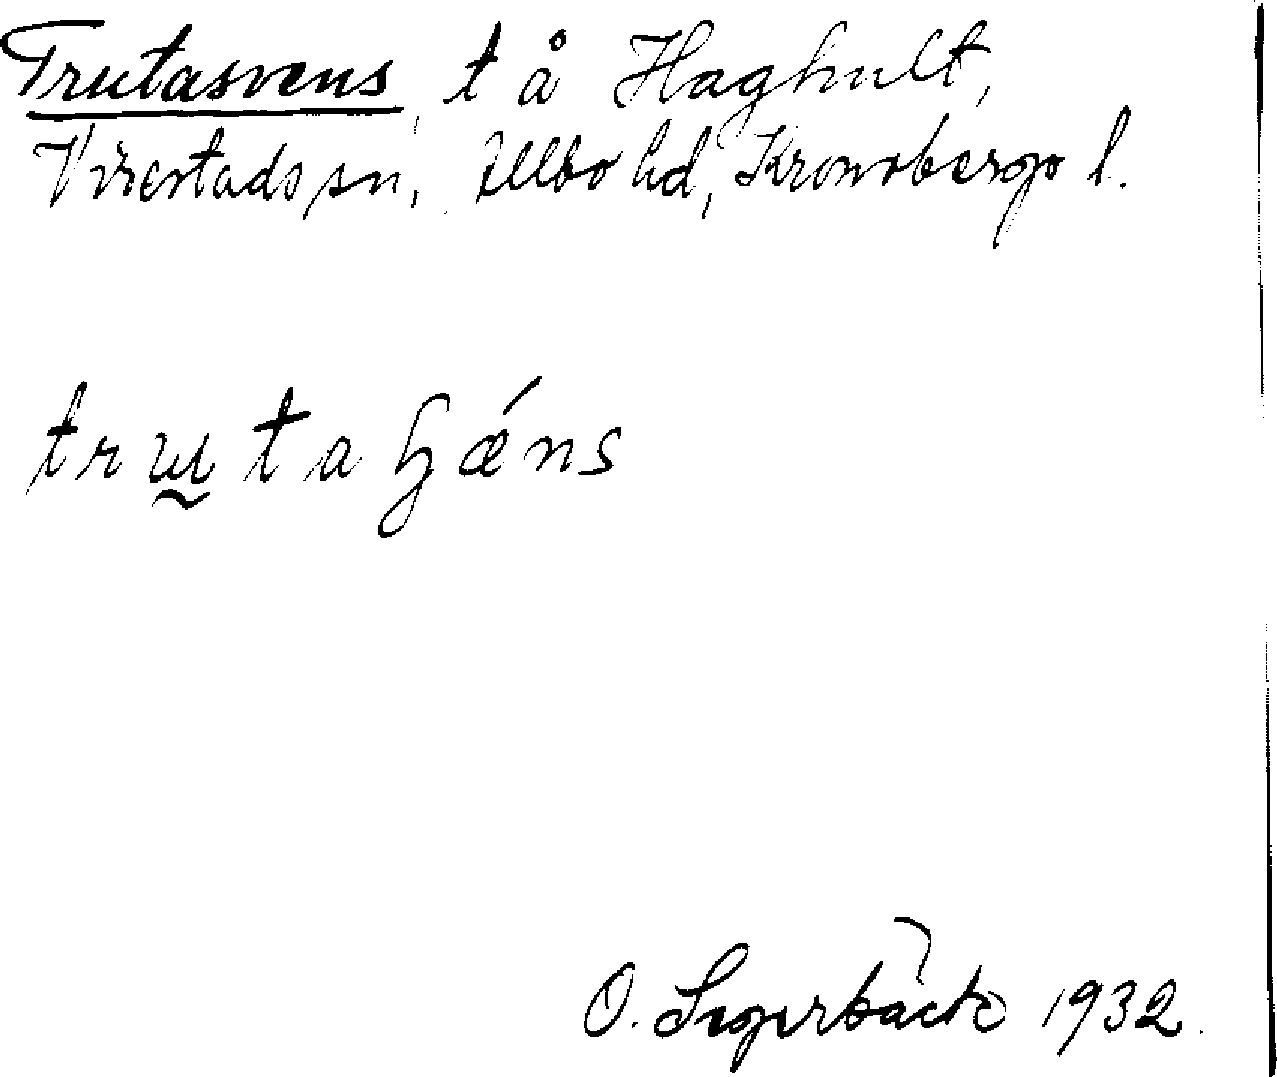 Trutasvens, t å Haghult,
Virestads sn, Allbo hd, Kronobergs l.
trutaʒǽns
O. Segerbäck 1932.